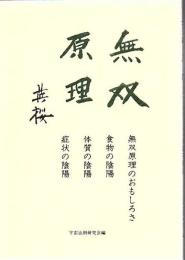 無双
原理
無双原理のおもしろさ
食物の陰陽
体質の陰陽
症状の陰陽
宇宙法則研究会編